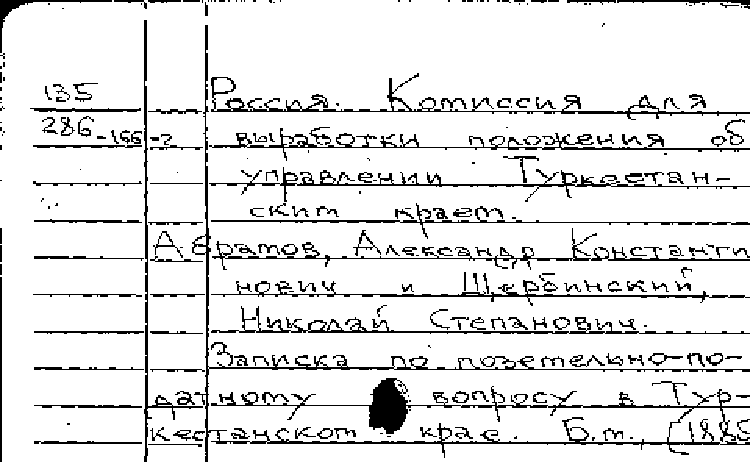 135 Россия. Комиссия для
286-166-2 выработки положения об
управлении Туркестан-
ским краем.
Абрамов, Александр Константи
нович и Щербинский,
Николай Степанович.
Записка по поземельно-по-
датному вопросу в Тур-
кестанском крае. Б.м., [1885